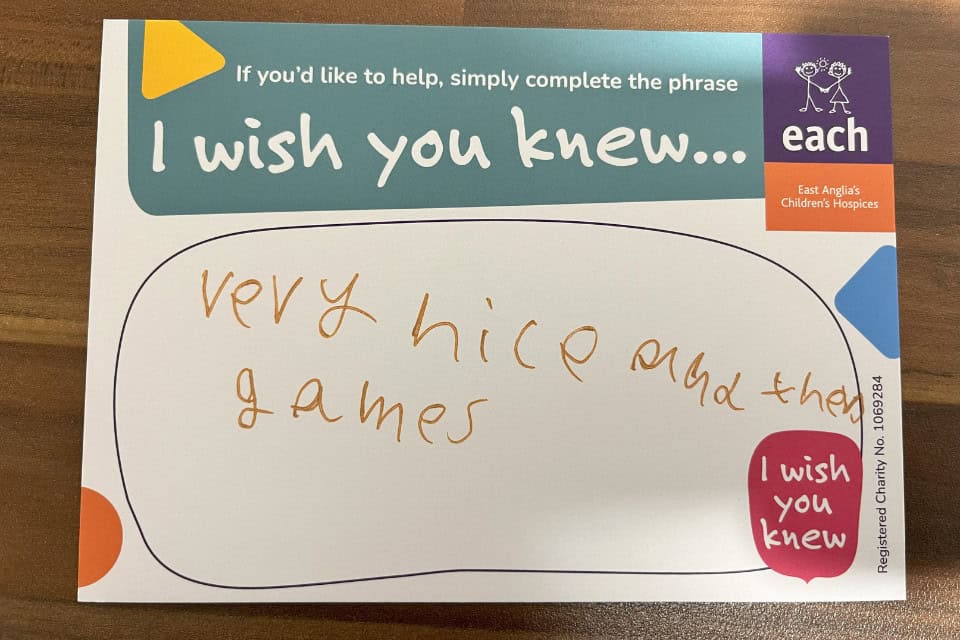 If you'd like to help, simply complete the phrase
I wish you knew...
each
East Anglia's
Children's Hospices
very nice and
games
I wish
you
knew
Registered Charity No. 1069284